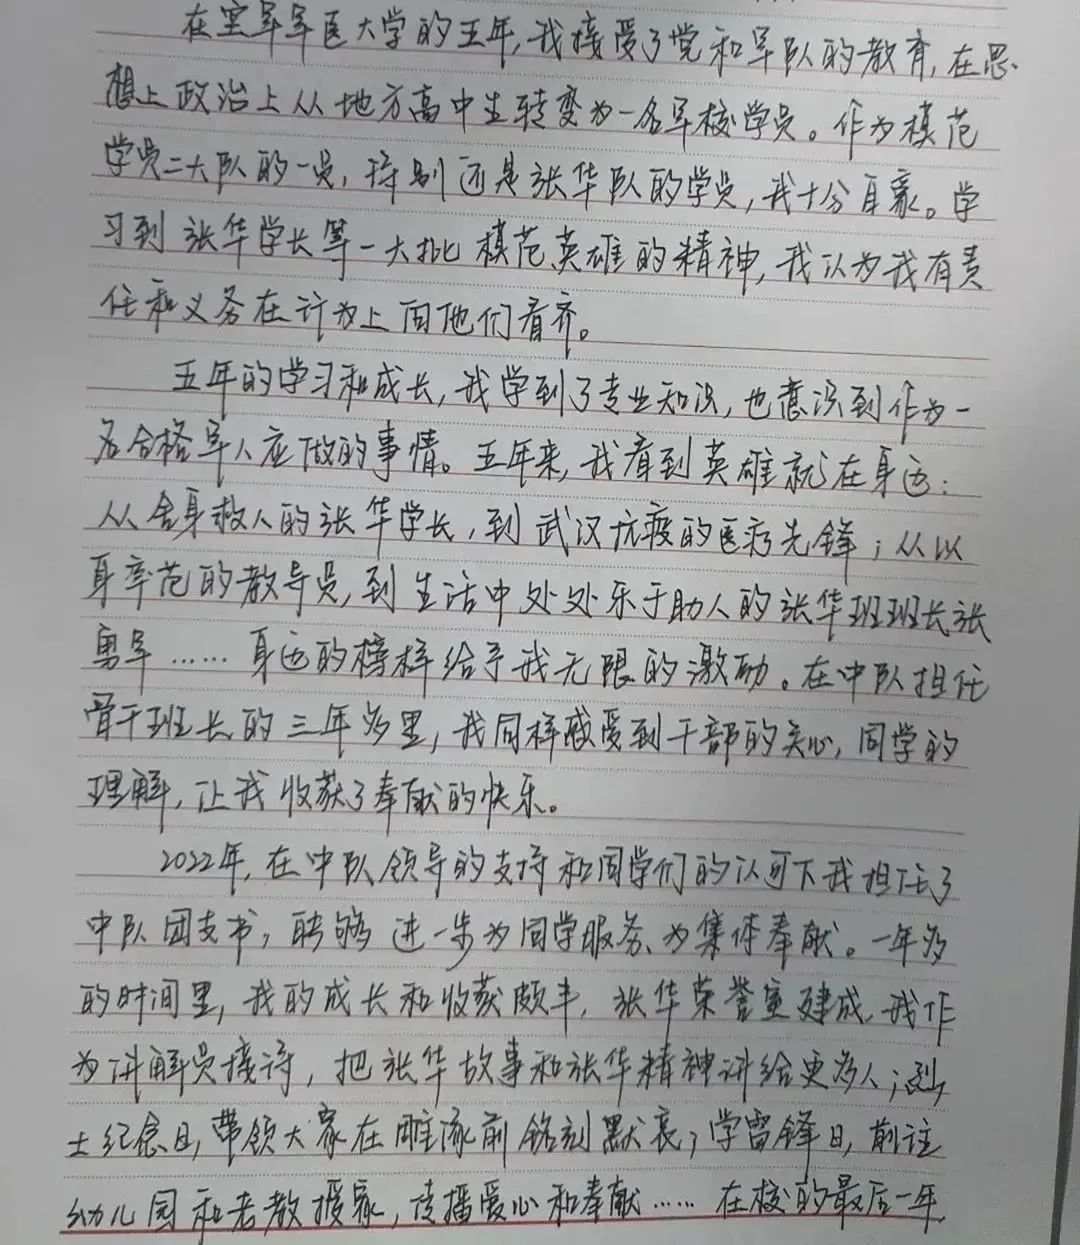 在空军军医大学的五年,我接受了党和军队的教育,在思
想上政治上从地方高中生转变为一名军校学员。作为模范
学员二大队的一员,特别还是张华队的学员,我十分自豪。学
习到张华学长等一大批模范英雄的精神,我认为我有责
任和义务在行为上向他们看齐。
五年的学习和成长,我学到了专业知识,也意识到作为一
名合格军人应做的事情。五年来,我看到英雄就在身边:
从舍身救人的张华学长,到武汉抗疫的医疗先锋;从以
身率范的教导员,到生活中处处乐于助人的张华班班长张
勇军……身边的榜样给予我无限的激励。在中队担任
骨干班长的三年多里,我同样感受到干部的关心,同学的
理解,让我收获了奉献的快乐。
2022年,在中队领导的支持和同学们的认可下我担任了
中队团支书,能够进一步为同学服务、为集体奉献。一年多
的时间里,我的成长和收获颇丰,张华荣誉室建成,我作
为讲解员接待,把张华故事和张华精神讲给更多人;烈
士纪念日,带领大家在雕像前 默哀;学雷锋日,前往
幼儿园和老教授家,传播爱心和奉献……在校的最后一年